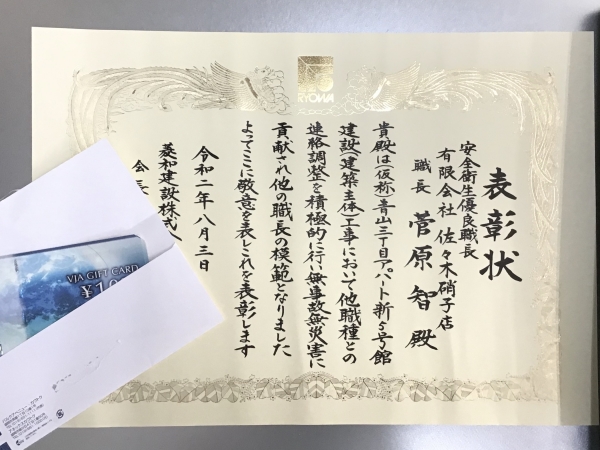 RYOWA
表彰状
安全衛生優良職長
有限会社 佐々木硝子店
職長 菅原智殿
貴殿は(仮称)青山三丁目アパート新5号館
建設(建築主体)工事において他職種との
連絡調整を積極的に行い無事故無災害に
貢献され他の職長の模範となりました
よってここに敬意を表しこれを表彰します
令和二年八月三日
菱和建設株式会
会長
VJA GIFT CARD